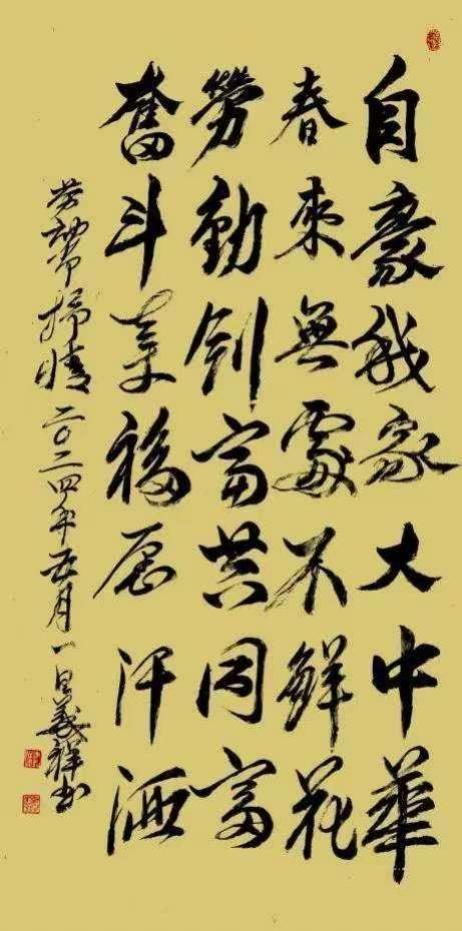 自豪我家大中華
春來無處不鮮花
勞動創富共同富
奮斗幸福汗洒
劳动节抒情 二〇二四年五月一日義祥书